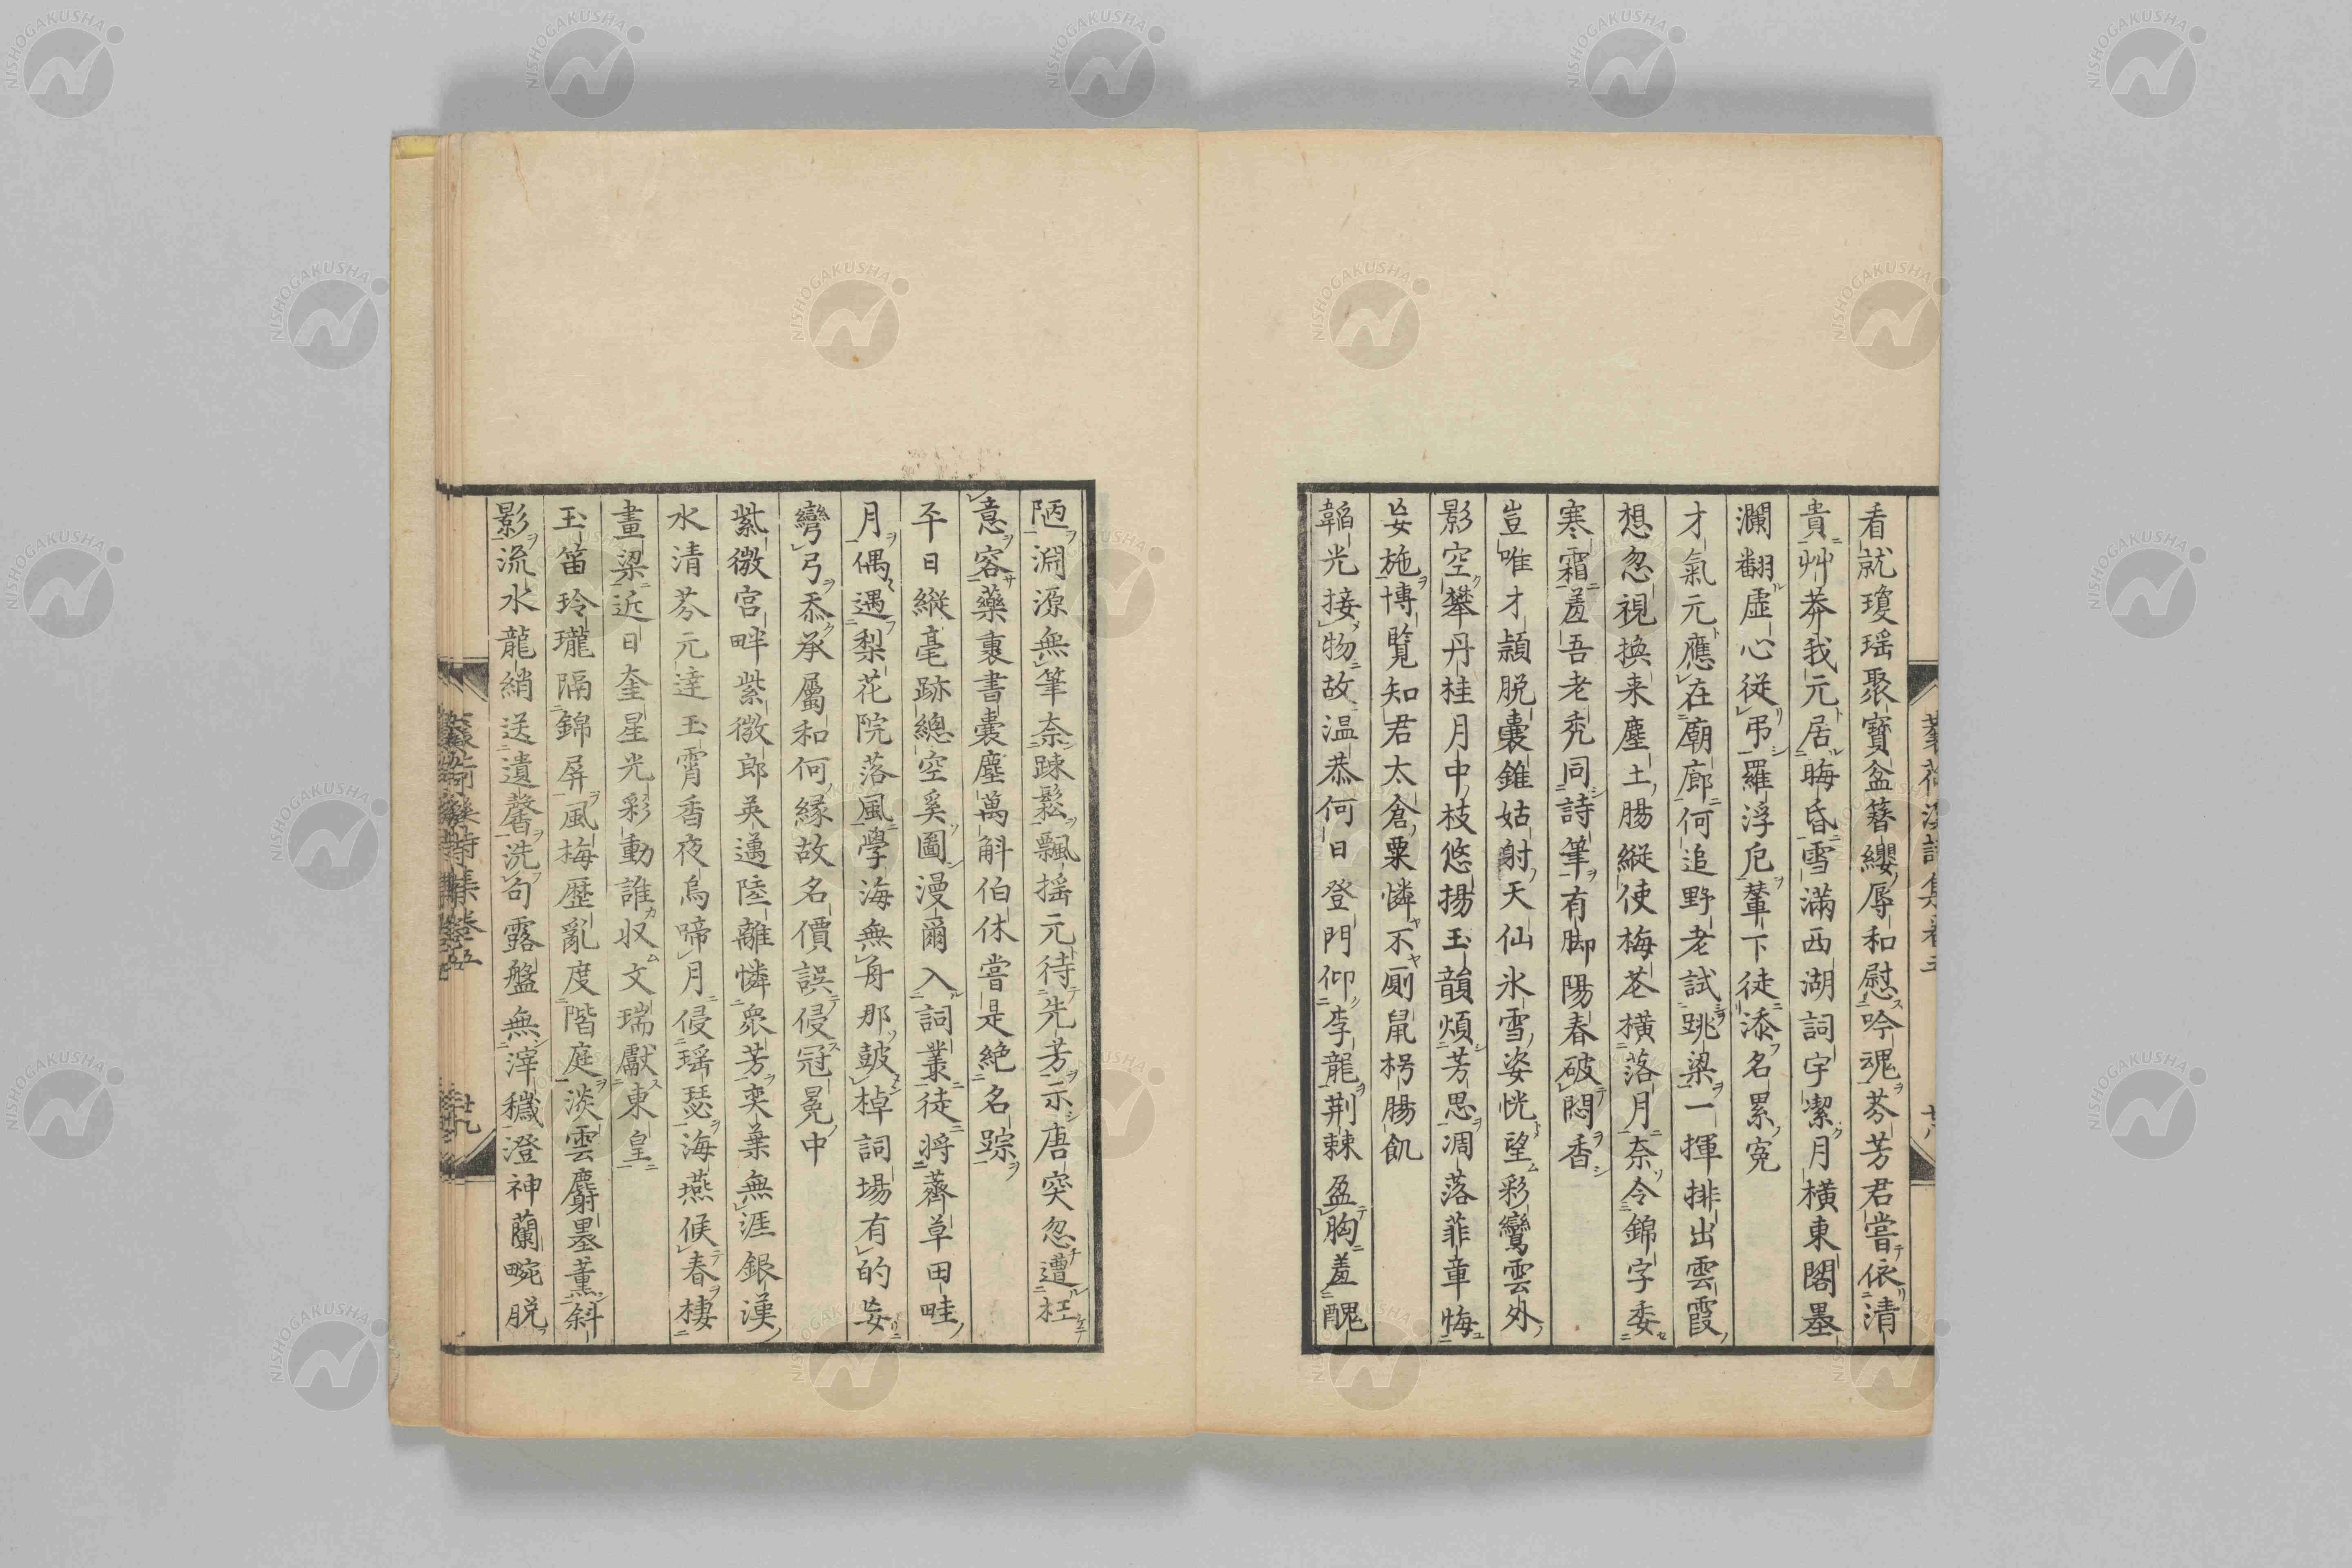 看就瓊瑶聚寶盆簪纓辱和慰吟魂芬芳君嘗依清
貴艸莽我元居晦昏雪滿西湖詞宇潔月橫東閣墨
瀾翻虛心従弔羅浮卮輦下徒添名累寃
才氣元應在廟廊何追野老試跳梁一揮排出雲霞
想忽視換来塵土腸縦使梅苍横落月奈令錦字委
寒霜羞吾老禿同詩筆有脚陽春破悶香
豈唯才穎脱囊錐姑射天仙氷雪姿恍望彩鸞雲外
影空攀丹桂月中枝悠揚玉韻煩芳思凋落菲章悔
妄施博覧知君太倉粟憐不厠鼠楞腸飢
韜光接物故温恭何日登門仰李龍荆棘盈胸羞醜
陋淵源無筆奈踈鬆飄揺元待先芳示唐突忽遭枉
意容藥裹書囊塵萬斛伯休嘗是絶名踪
平日縦毫跡總空奚圖漫爾入詞叢徒將薺草田畦
月偶遇梨花院落風學海無舟那皷棹詞場有的妄
彎弓忝承屬和何縁故名價誤侵冠冕中
紫微宮畔紫微郎英邁陸離憐衆芳奕葉無涯銀漢
水清芬元達玉霄香夜烏啼月侵瑶瑟海燕候春棲
畫梁近日奎星光彩動誰収文瑞獻東皇
玉笛玲瓏隔錦屏風梅歴亂度階庭淡雲麝墨薫斜
影流水龍綃送遺馨洗句露盤無滓穢澄神蘭畹脱
NISHOGAKUSHA